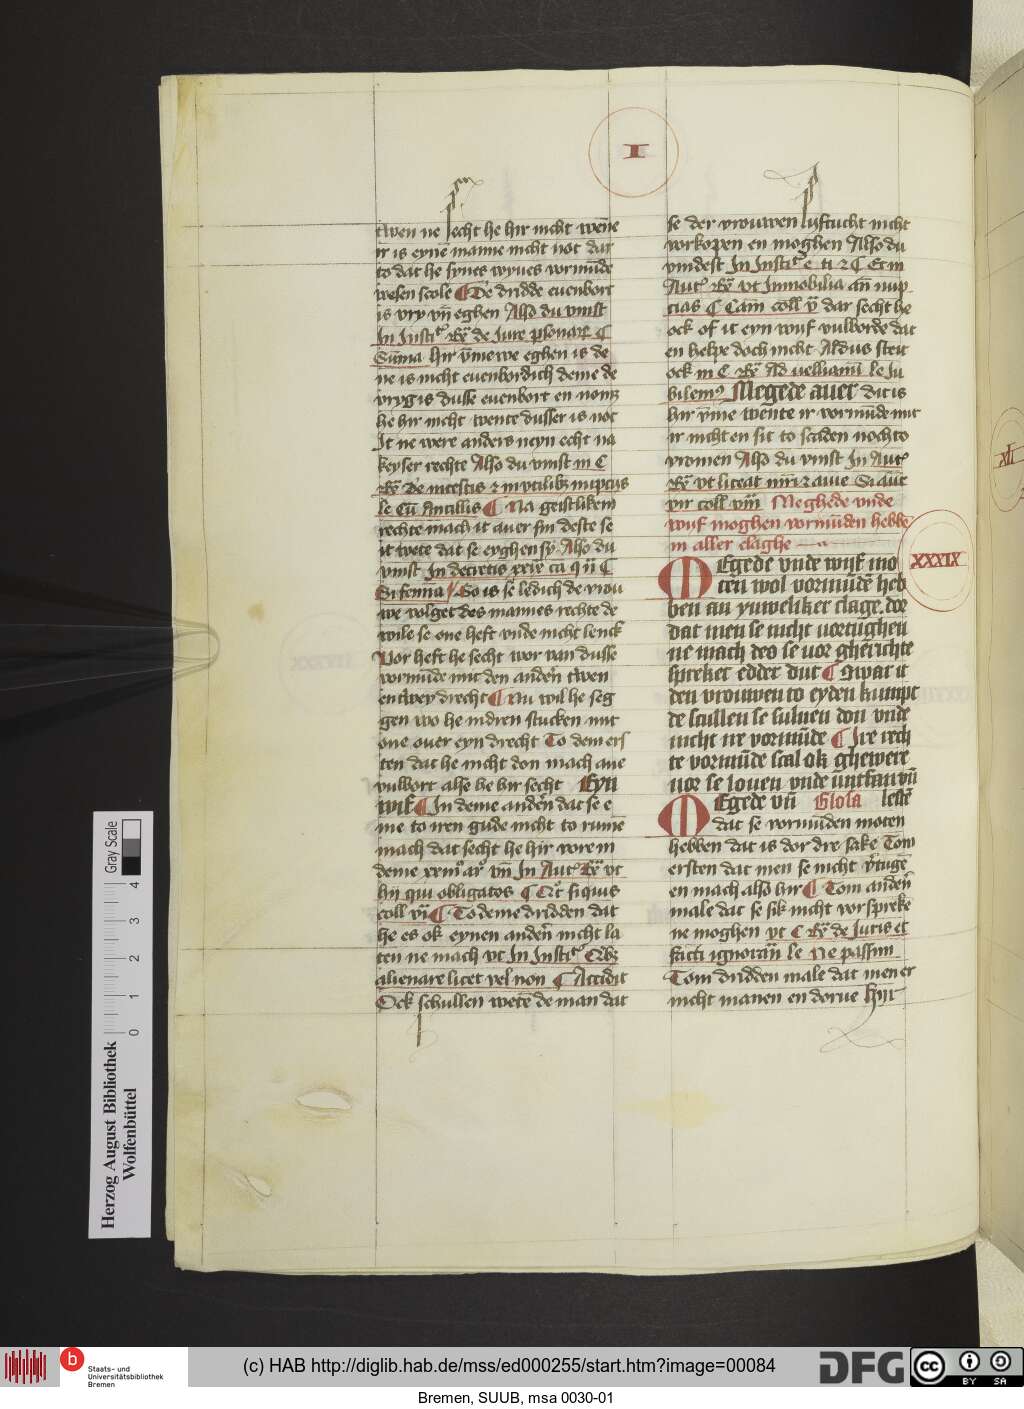 I
twen ne secht he hir nicht wēne
ir is eyne manne nicht not dar
to dat he synes wyues vormūde
wesen scole ¶ De dridde euenbort
is vry vn̄ eghen Also du vinst
In Instiᵗ Rͬ de Jure psonarꝛ C
Sūma hir v̄me we eghen is de
ne is nicht euenbordich deme de
vryg is dusse euenbort en nomꝫ
he hir nicht wente dusser is not
It ne were anders neyn echt na
keyser rechte Also du vinst in C
Rͬ de incestis ⁊ inutilibꝫ nupcijs
le Cū Ancillis ¶ Na geistlikem
rechte mach it auer sin deste se
it wete dat se eyghen sy Also du
vinst In decretis xxix ca q ij C
Si femīa / So is se ledich de vrou
we volget des mannes rechte de
wile se one heft vnde nicht lenck
Vor heft he secht wor van dusse
vormūde mit den andern twen
en twey drecht ¶ Nu wil he seg
gen wo he indren stucken mit
one ouer eyn drecht To dem ers
ten dat he nicht don mach ane
vulbort alse he hir secht Eyn
wiff ¶ In deme andern dat se e
me to iren gude nicht to rumē
mach dat secht he hir vorem
deme xxxiᵒ arᵒ vn̄ In Autᵗ Rͬ vt
hij qui obligatos C Crt si quis
coll vi ¶ To deme dridden dat
he es ok eynen andern nicht la
ten ne mach vt In Instiᵗ Qibꝫ
alienare licet vel non C Accidit
Ock schullen wete de man dat
se der vrouwen lyftucht nicht
vorkopen en moghen Also du
vindest In Instiᵗ e ti ⁊ C Et in
Autᵗ Rͬ vt Immobilia an̄ nup
cias C Cam coll v̄ dar secht he
ock of it eyn wyf vulborde dat
en helpe doch nicht Aldus steit
ock in C Rͬ Ad velliaūm le Ju
bilemꝰ Megede auer dit is
hir v̄me wente ir vormūde mit
ir nicht en sit to scaden noch to
vromen Also du vinst In Autᵗ
Rͬ vt liceat mrī ⁊ auie Si aūt
vir coll viij Meghede vnde
wyf moghen vormūden hebbē
in aller claghe
XXXIX
MEgede vnde wyff mo
ten wol vormūdē heb
ben an yuweliker clage. dor
dat men se nicht vortughen
ne mach des se vor gherichte
spreket edder dut ¶ Swar it
den vrouwen to eyden kumpt
de scullen se suluen don vnde
nicht ire vormūde ¶ Ire rech
te vormūde scal ok ghewere
vor se louen vnde vntfan vn̄
MEgede vn̄ Glosa lestē
dat se vormūden moten
hebben dat is dor dre sake Tom
ersten dat men se nicht v̄tugē
en mach also hir ¶ Tom andern
male dat se sik nicht vorspreke
ne moghen vt C Rͬ de Juris et
facti ignoran̄ le Ne passim
Tom dridden male dat men er
nicht manen en dorue hijr
XLI
Gray Scale
0 1 2 3 4
Herzog August Bibliothek
Wolfenbüttel
b
Staats- und
Universitätsbibliothek
Bremen
(c) HAB http://diglib.hab.de/mss/ed000255/start.htm?image=00084
DFG
cc BY SA
Bremen, SUUB, msa 0030-01